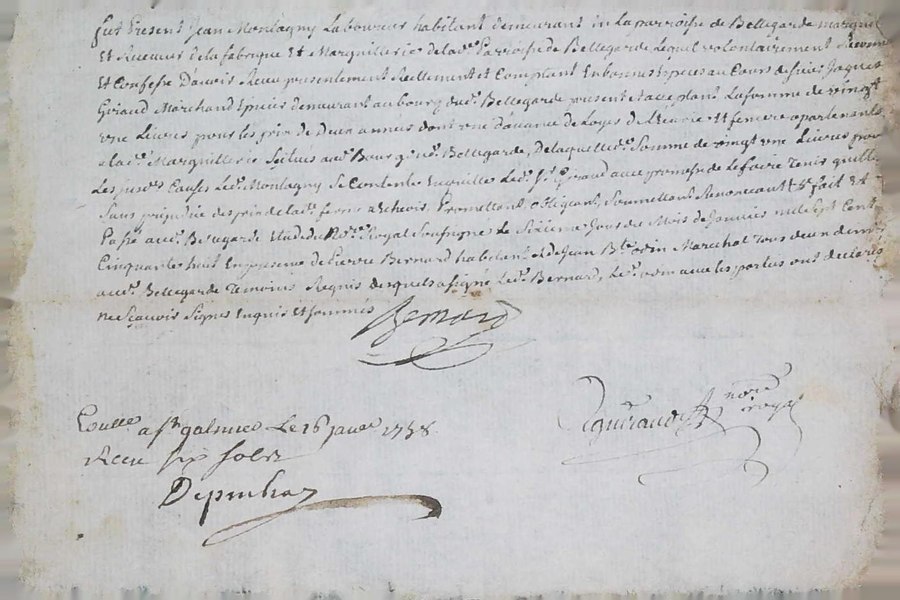 fut Present Jean Montagny Laboureur habitant demeurant en La parroisse de Bellegarde
Et Receveur de la fabrique Et Marguillerie de lad.e Parroisse de Bellegarde Lequel volontairement
Et Confesse D'avoir Receu presentement Reellement et Comptant En bonnes Especes au Cours de sieur Jaques
Giraud Marchand Epicier demeurant au bourg dud.t Bellegarde present et acceptant La somme de vingt
une Livres pour les prix de Deux années dont une
a lad.e Marguillerie Scitués aud.t Bourg Bellegarde, De laquelle Somme de vingt une Livres pour
Les jus.es Causes Led.t Montagny Se Contente En quitte Led.t S.r Giraud avec promesse de Le faire Tenir quitte
Sans prejudice des prix de lad.e ferme a Echeoir, Promettant obligeant, Soumettant Renonceant &c fait Et
Passé aud.t Bellegarde Royal Soussigné Le Sixieme Jour du Mois de Janvier mil Sept Cent
Cinquante huit En presence de Pierre Bernard habitant Et de Jean B.te odin Marechal Tous deux demt
aud.t Bellegarde Temoins Requis desquels a signé Led.t Bernard, Led.t odin avec les parties ont declarés
ne Sçavoir Signer Enquis Et sommés
Bernard
Coulle a S.t galmier Le 16 janv.r 1758
Receu six sols